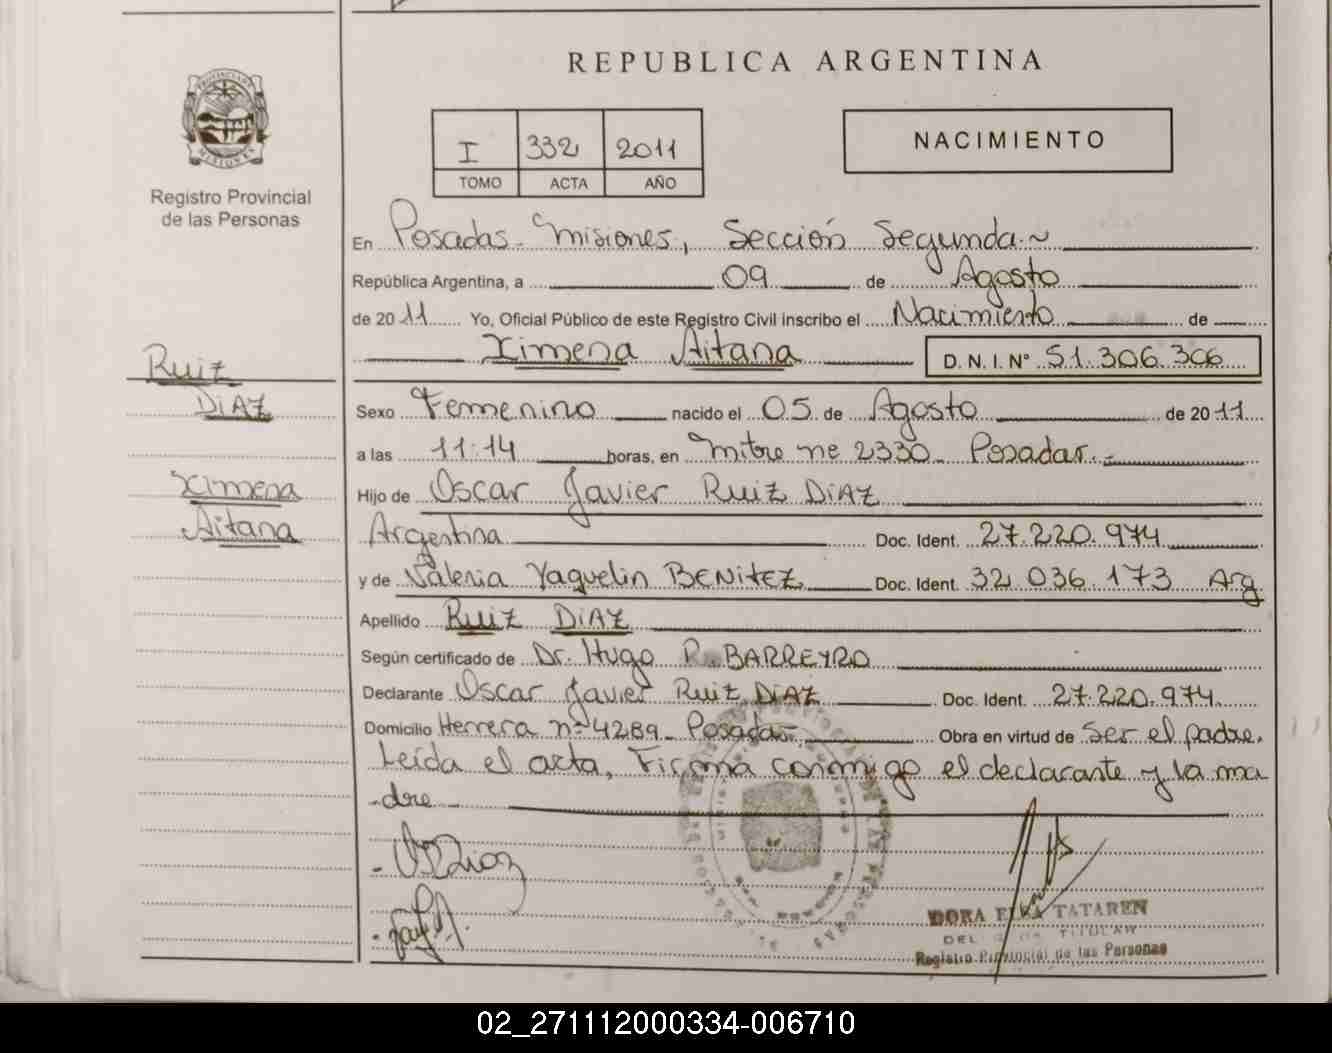 REPUBLICA ARGENTINA
PROVINCIA DE
MISIONES
Registro Provincial
de las Personas
I 332 2011
TOMO ACTA AÑO
NACIMIENTO
En Posadas - Misiones, Sección Segunda.~
República Argentina, a 09 de Agosto
de 2011 Yo, Oficial Público de este Registro Civil inscribo el Nacimiento de
Ximena Aitana D. N. I. Nº 51.306.306
Ruiz
DiAZ
Ximena
Aitana
Sexo Femenino nacido el 05 de Agosto de 2011
a las 11:14 horas, en Mitre nº 2330 - Posadas.-
Hijo de Oscar Javier Ruiz DiAZ
Argentina Doc. Ident. 27.220.974
y de Valeria Yaquelin BENiTEZ Doc. Ident. 32.036.173 Arg
Apellido Ruiz DiAZ
Según certificado de Dr. Hugo R. BARREYRO
Declarante Oscar Javier Ruiz DiAZ Doc. Ident. 27.220.974
Domicilio Herrera nº 4289 - Posadas.- Obra en virtud de Ser el padre.
Leída el acta, Firma conmigo el declarante y la ma
-dre
DORA TATAREN
DEL TITULAR
Registro Provincial de las Personas
02_271112000334-006710